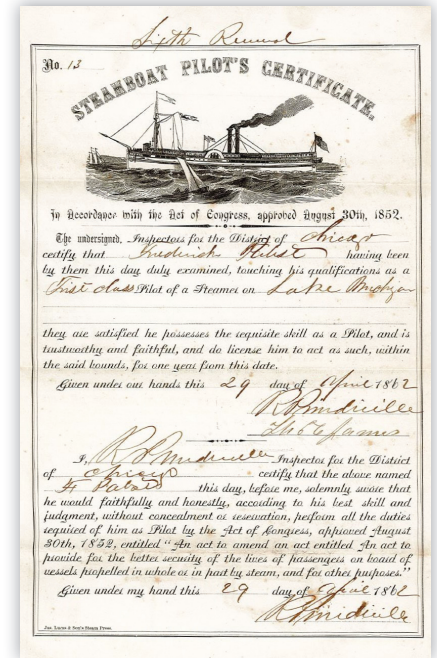 Sixth Renewal
No. 13
STEAMBOAT PILOT'S CERTIFICATE.
In Accordance with the Act of Congress, approved August 30th, 1852.
The undersigned, Inspectors for the District of Chicago
certify that Frederick Pabst having been
by them this day duly examined, touching his qualifications as a
First class Pilot of a Steamer on Lake Michigan
they are satisfied he possesses the requisite skill as a Pilot, and is
trustworthy and faithful, and do license him to act as such, within
the said bounds, for one year from this date.
Given under our hands this 29 day of April 1862
I, Inspector for the District
of Chicago certify that the above named
F Pabst this day, before me, solemnly swore that
he would faithfully and honestly, according to his best skill and
judgment, without concealment or reservation, perform all the duties
required of him as Pilot by the Act of Congress, approved August
30th, 1852, entitled "An act to amend an act entitled An act to
provide for the better security of the lives of passengers on board of
vessels propelled in whole or in part by steam, and for other purposes."
Given under my hand this 29 day of April 1862